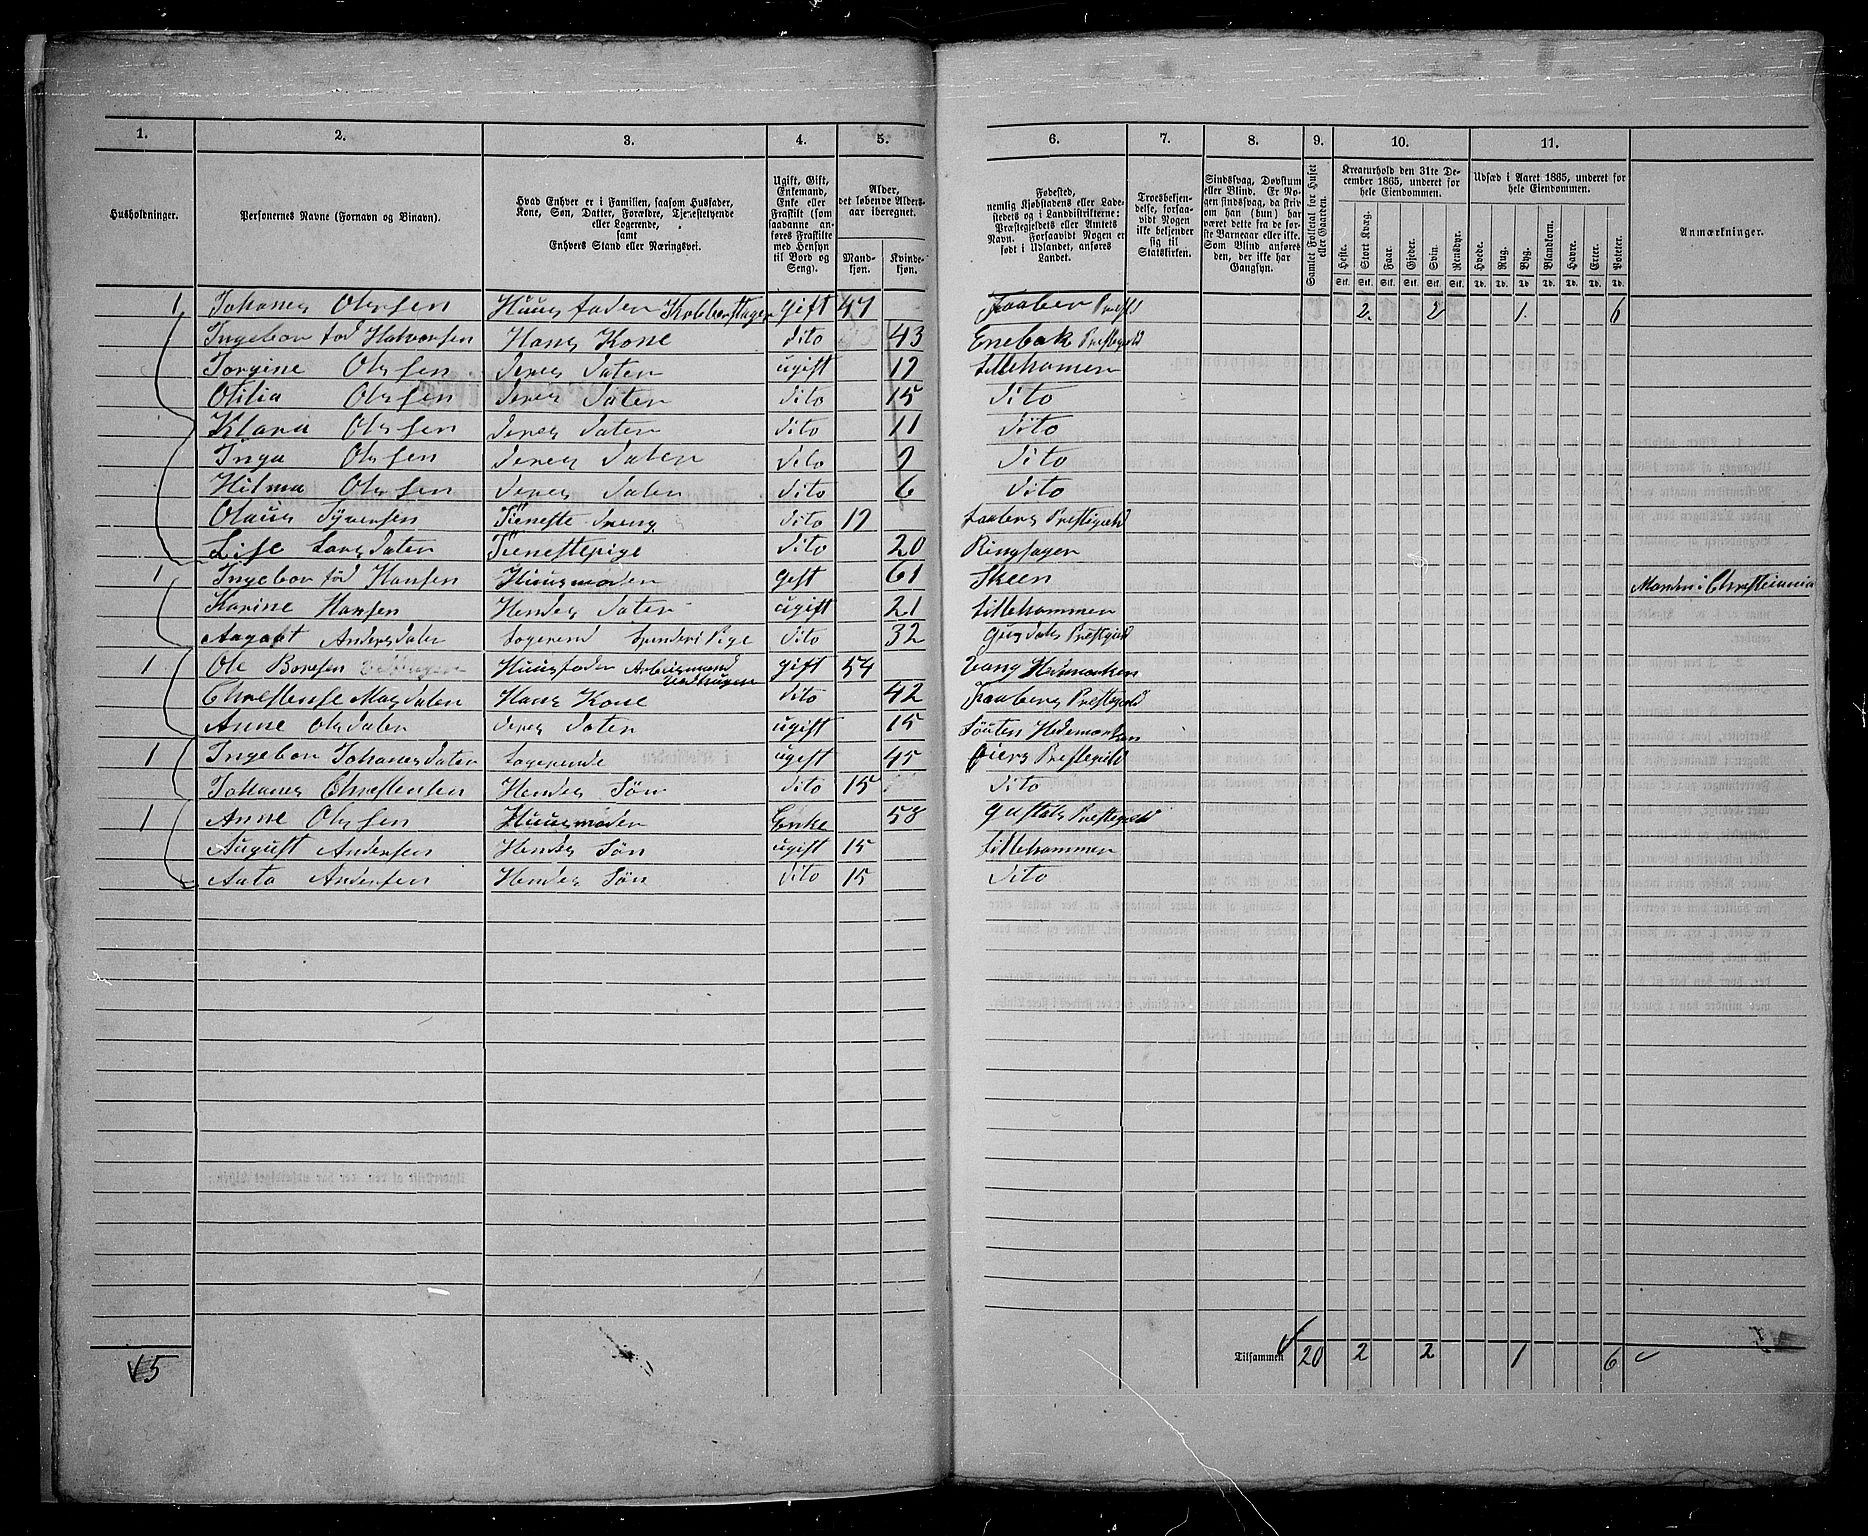 1. 2. 3. 4. 5. 6. 7. 8. 9. 10. 11.
Husholdninger. Personernes Navne (Fornavn og Binavn). Hvad Enhver er i Familien, saasom Husfader, Kone, Søn, Datter, Forældre, Tjenestetyende eller Logerende, samt Enhvers Stand eller Næringsvei. Ugift, Gift, Enkemand, Enke eller Fraskilt (som saadanne anføres Fraskilte med Hensyn til Bord og Seng). Alder, det løbende Aldersaar iberegnet. Mandkjøn. Kvindekjøn. Fødested, nemlig Kjøbstadens eller Ladestedets og i Landdistrikterne: Præstegjeldets eller Amtets Navn. Forsaavidt Nogen er født i Udlandet, anføres Landet. Troesbekjendelse, forsaavidt Nogen ikke bekjender sig til Statskirken. Sindssvag, Døvstum eller Blind. Er Nogen sindssvag, da skriv om han (hun) har været dette fra de første Barneaar eller ikke. Som Blind anføres den, der ikke har Gangsyn. Samlet Folketal for Huset eller Gaarden. Kreaturhold den 31te December 1865, underet for hele Eiendommen. Udsæd i Aaret 1865, underet for hele Eiendommen. Anmærkninger.
Heste. Stort Kvæg. Faar. Gjeder. Svin. Rensdyr. Hvede. Rug. Byg. Blandkorn. Havre. Erter. Poteter.
Stk. Stk. Stk. Stk. Stk. Stk. Td. Td. Td. Td. Td. Td. Td.
1 Johanes Olersen Huusfader Kobberslager gift 47 Faaber Prestl 2. 2 1. 6
Ingebor fød Halvorsen Hans Kone dito 43 Enebak Prestegield
Torgine Olersen deres Dater ugift 17 Lillehamen
Otilia Olersen deres Dater dito 15 dito
Klara Olersen deres Dater dito 11 dito
Inga Olersen deres Dater dito 7 dito
Hilma Olersen deres Dater dito 6 dito
Olaus Syversen Tieneste dreng dito 17 Faabers Prestegield
Lise Larsdaten Tienestepige dito 20 Ringsagen
1 Ingebor fød Hansen Huusmoder gift 61 Skeen Manden i Christiania
Karine Hansen Hendes Dater ugift 21 Lillehammer
Aagaat Andersdaten Logerend Spinderi Pige dito 32 Gusdals Prestgield
1 Ole Borresen Huusfader Arbeismand Vedhugger gift 54 Vang Hedmarken
Chrestense Masdaten Hans Kone dito 42 Faabers Prestgield
Anne Olsdaten deres Daten ugift 15 Løuten Hedemarken
1 Ingebor Johanesdaten Logerende ugift 45 Øiers Prestegield
Johanes Chrestensen Hendes Søn dito 15 dito
1 Anne Olersen Huusmoder Enke 58 Gustals Prestegield
August Andersen Hendes Søn ugift 15 Lillehammer
Anto Andersen Hendes Søn dito 15 dito
5 Tilsammen 20 2 2 1 6